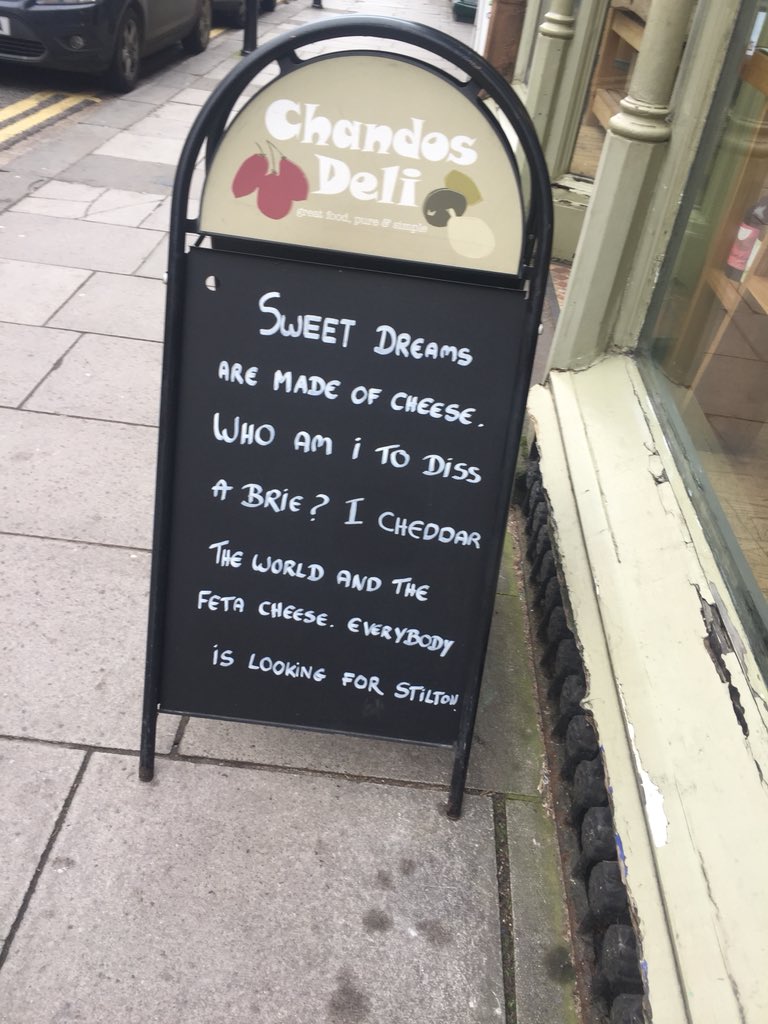 Chandos
Deli
great food, pure & simple
SWEET DREAMS
ARE MADE OF CHEESE.
WHO AM i TO DiSS
A BRiE? I CHEDDAR
THE WORLD AND THE
FETA CHEESE. EVERYBODY
iS LOOKiNG FOR STiLTON